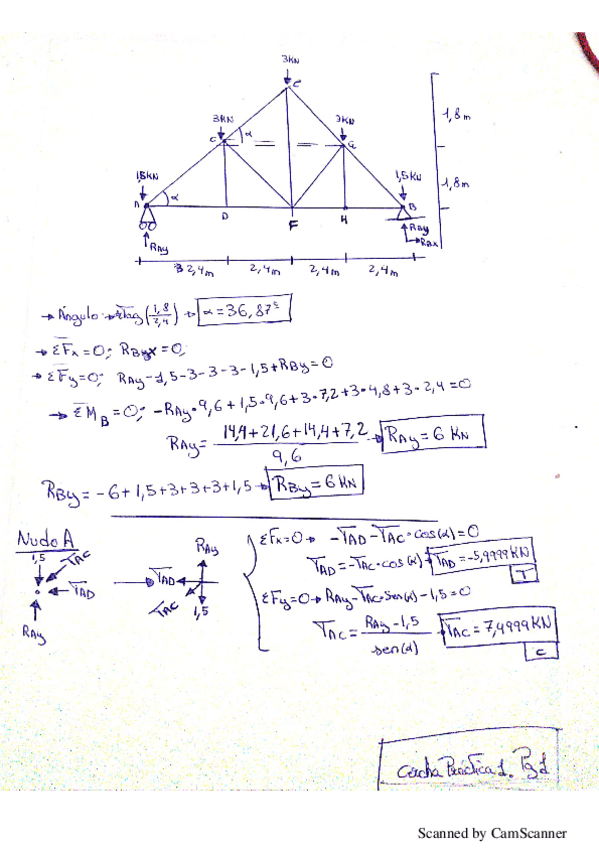 3KN
C
3KN
3KN
1,8 m
C
α
G
1,5KN
1,5KN
1,8 m
A
α
B
D
F
H
RAy
RAy
RBx
2,4m
2,4m
2,4m
2,4m
→ Ángulo → tag(1,8/2,4) → α = 36,87°
→ ΣFx=0; RByx=0;
→ ΣFy=0; RAy-1,5-3-3-3-1,5+RBy=0
→ ΣMB=0; -RAy·9,6+1,5·9,6+3·7,2+3·4,8+3·2,4=0
RAy= 14,4+21,6+14,4+7,2 / 9,6 → RAy=6 KN
RBy=-6+1,5+3+3+3+1,5 → RBy=6KN
Nudo A
1,5
TAC
TAD
RAy
RAy
TAD
TAC
1,5
ΣFx=0→ -TAD-TAC·cos(α)=0
TAD=-TAC·cos(α) → TAD=-5,9999KN
T
ΣFy=0→RAy-TAC·sen(α)-1,5=0
TAC= RAy-1,5 / sen(α) → TAC=7,4999KN
C
Cercha Práctica 1. Pg 1
Scanned by CamScanner